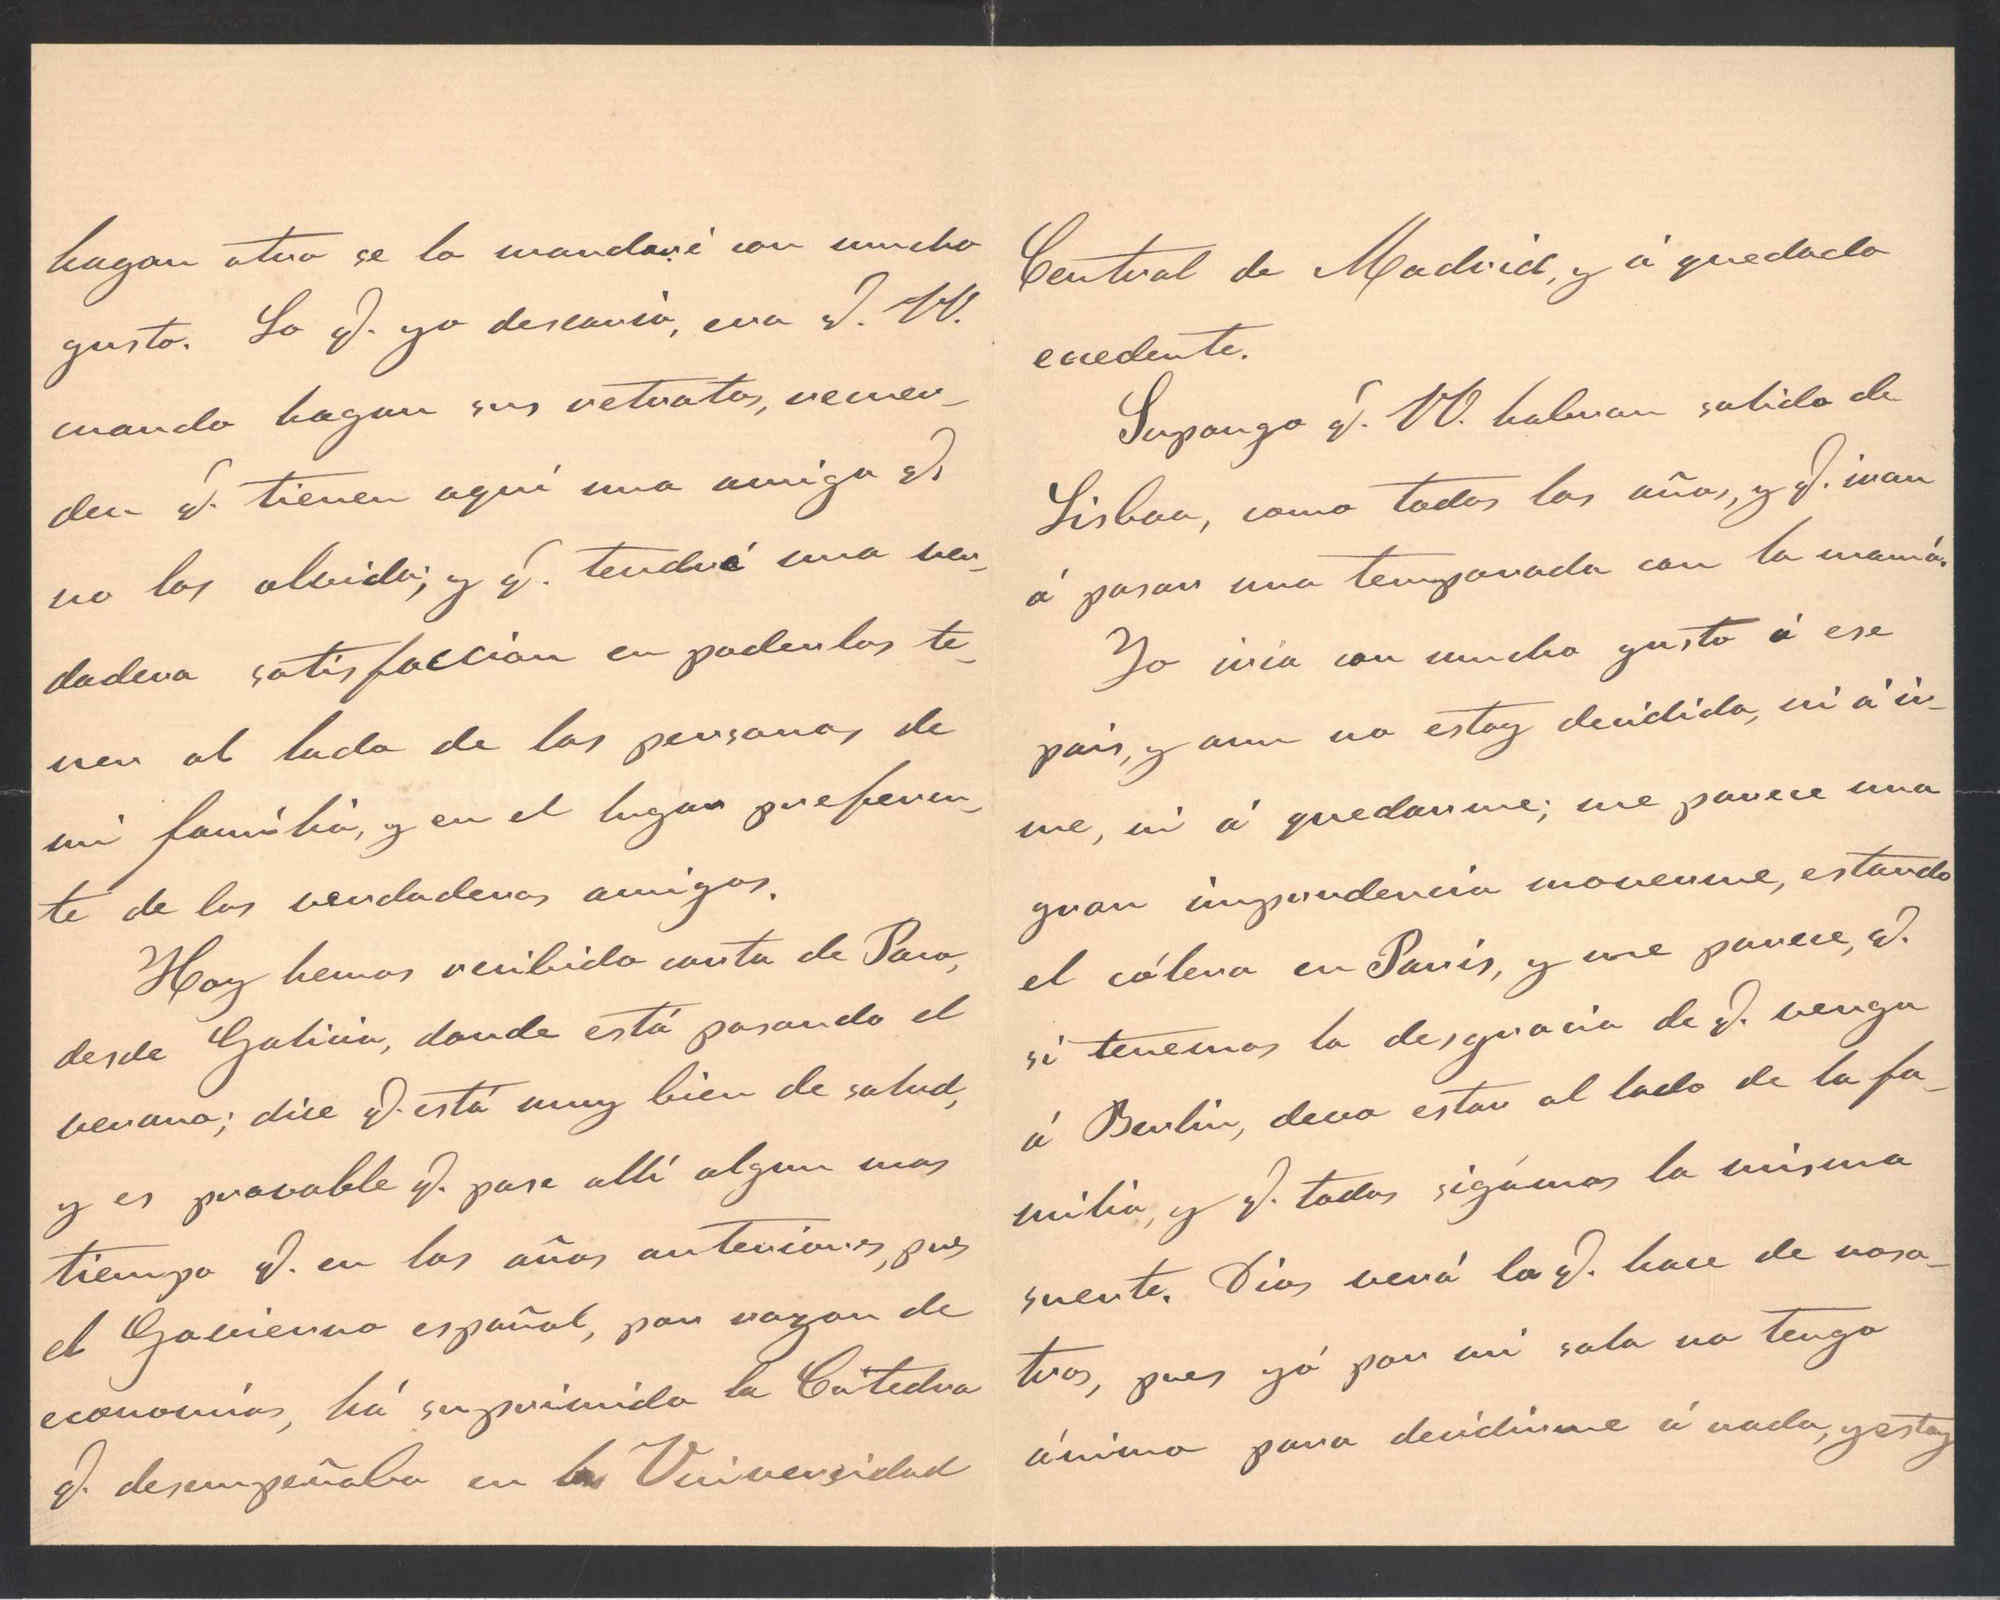 hagan otro se lo mandaré con mucho
gusto. Lo q. yo desearia, era q. VV.
cuando hagan sus retratos, recuer-
den q. tienen aquí una amiga q.
no los olvida; y q. tendré una ver-
dadera satisfaccion en poderlos te-
ner al lado de las personas de
mi família, y en el lugar preferen-
te de los verdaderos amigos.
Hoy hemos recibido carta de Paco,
desde Galicia, donde está pasando el
verano; dice q. está muy bien de salud,
y es provable q. pase allí algun mas
tiempo q. en los años anteriores, pues
el Govierno español, por razon de
economías, há suprimido la Cátedra
q. desempeñaba en la Universidad
Central de Madrid, y á quedado
excedente.
Supongo q. VV. habran salido de
Lisboa, como todos los años, y q. iran
á pasar una temporada con la mamá.
Yo iria con mucho gusto á ese
pais, y aun no estoy decidida, ni á ir-
me, ni á quedarme; me parece una
gran imprudencia moverme, estando
el cólera en Paris, y me parece, q.
si tenemos la desgracia de q. venga
á Berlin, devo estar al lado de la fa-
milia, y q. todos sigámos la misma
suerte. Dios verá lo q. hace de noso-
tros, pues yó por mi sola no tengo
ánimo para decidirme á nada, y estoy